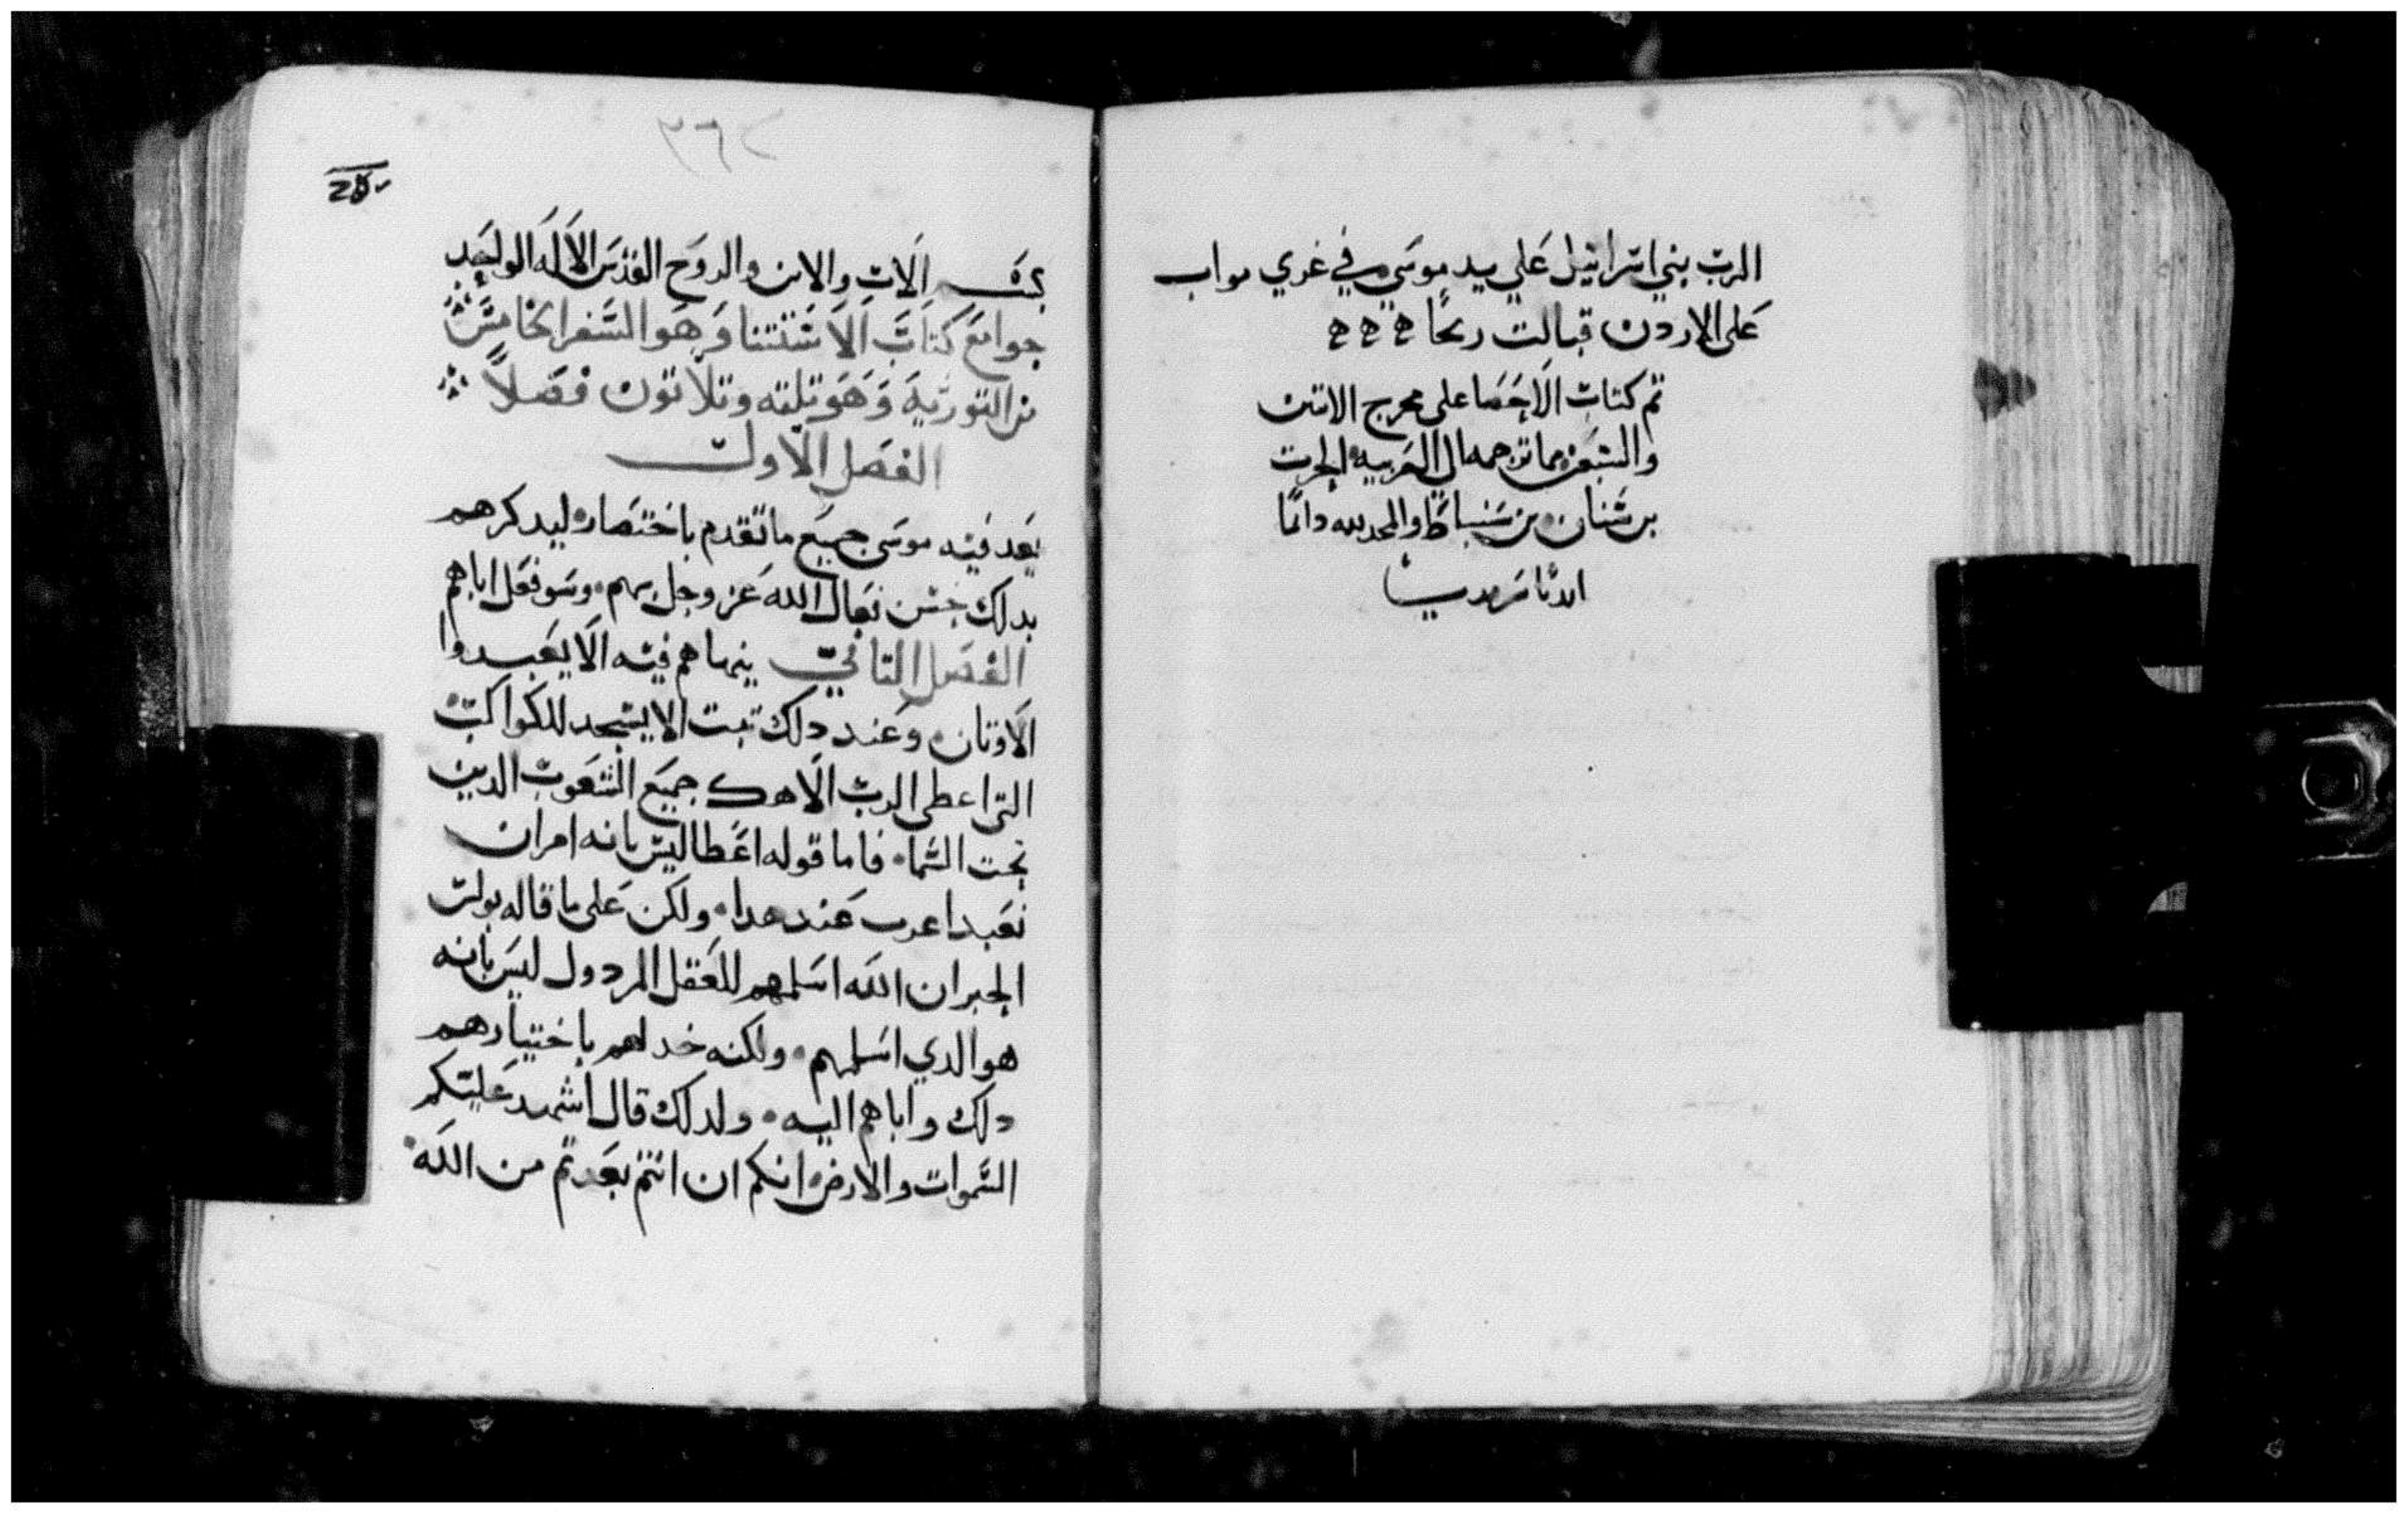 الرب بني اسرائيل علي يد موسي في غربي مواب
علي الاردن قبالت ريحا ه ه ه
تم كتاب الاحصا علي مخرج الاتنين
والسبعين مما ترجمه الي العربيه الحرت
بن سنان بن سنباط والمجد لله دائما
ابدًا سرمديا
٣٦٢
بسم الاب والابن والروح القدس الاله الواحد
جوامع كتاب الاستتنا وهو السفر الخامس
من التوريه وهو تلته وتلاتون فصلاً
الفصل الاول
يعد فيه موسى جميع ما تقدم باختصار ليدكرهم
بدلك حسن فعال الله عز وجل بهم وسو فعل اباهم
الفصل التاني ينهاهم فيه الا يعبدوا
الاوتان وعند دلك تبت الا يسجد للكواكب
التي اعطي الرب الاهك جميع الشعوب الدين
تحت السماء فاما قوله اعطا ليس بانه امر ان
تعبد اعرب عند هدا ولكن علي ما قاله بولس
الحبر ان الله اسلمهم للعقل المردول ليس بانه
هو الدي اسلمهم ولكنه خدلهم باختيارهم
دلك واباهم اليه ولدلك قال اشهد عليكم
السموات والارض انكم ان انتم بعدتم من الله